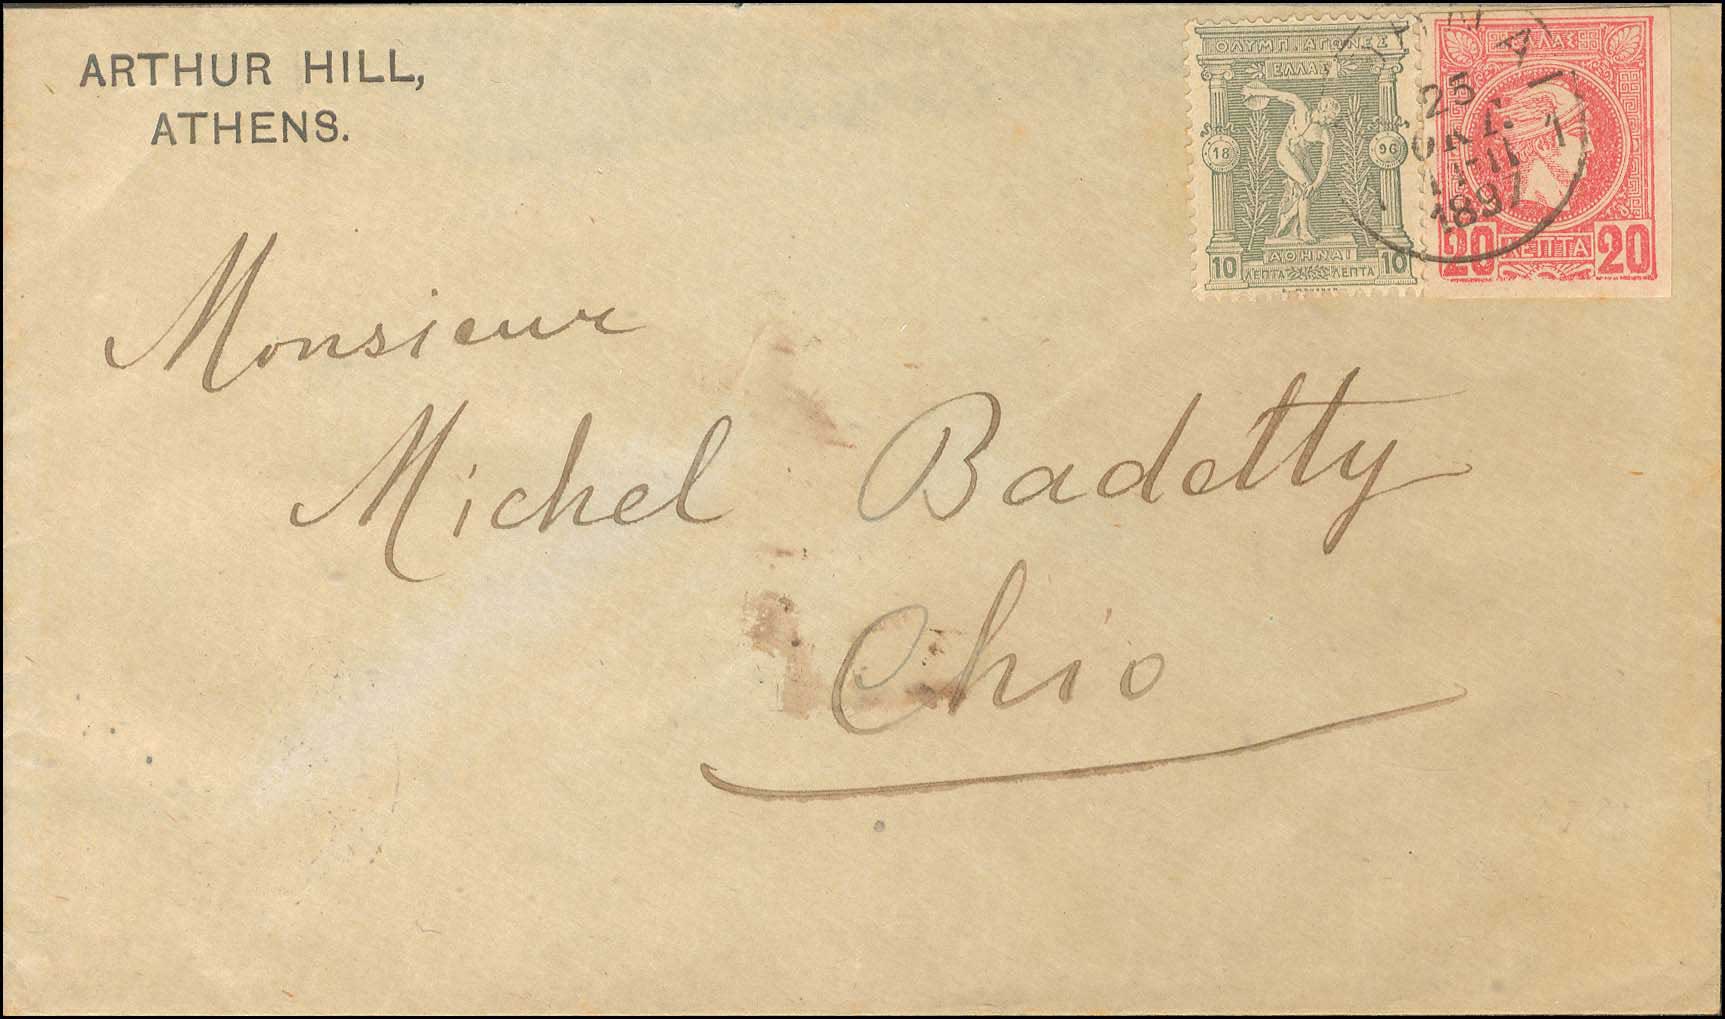 ARTHUR HILL,
ATHENS.
ΟΛΥΜΠ. ΑΓΩΝΕΣ
ΕΛΛΑΣ
18 96
ΑΘΗΝΑΙ
10 ΛΕΠΤΑ ΛΕΠΤΑ 10
ΕΛΛΑΣ
20 ΛΕΠΤΑ 20
25
ΟΚΤ.
1
1897
Monsieur
Michel Badetty
Chio